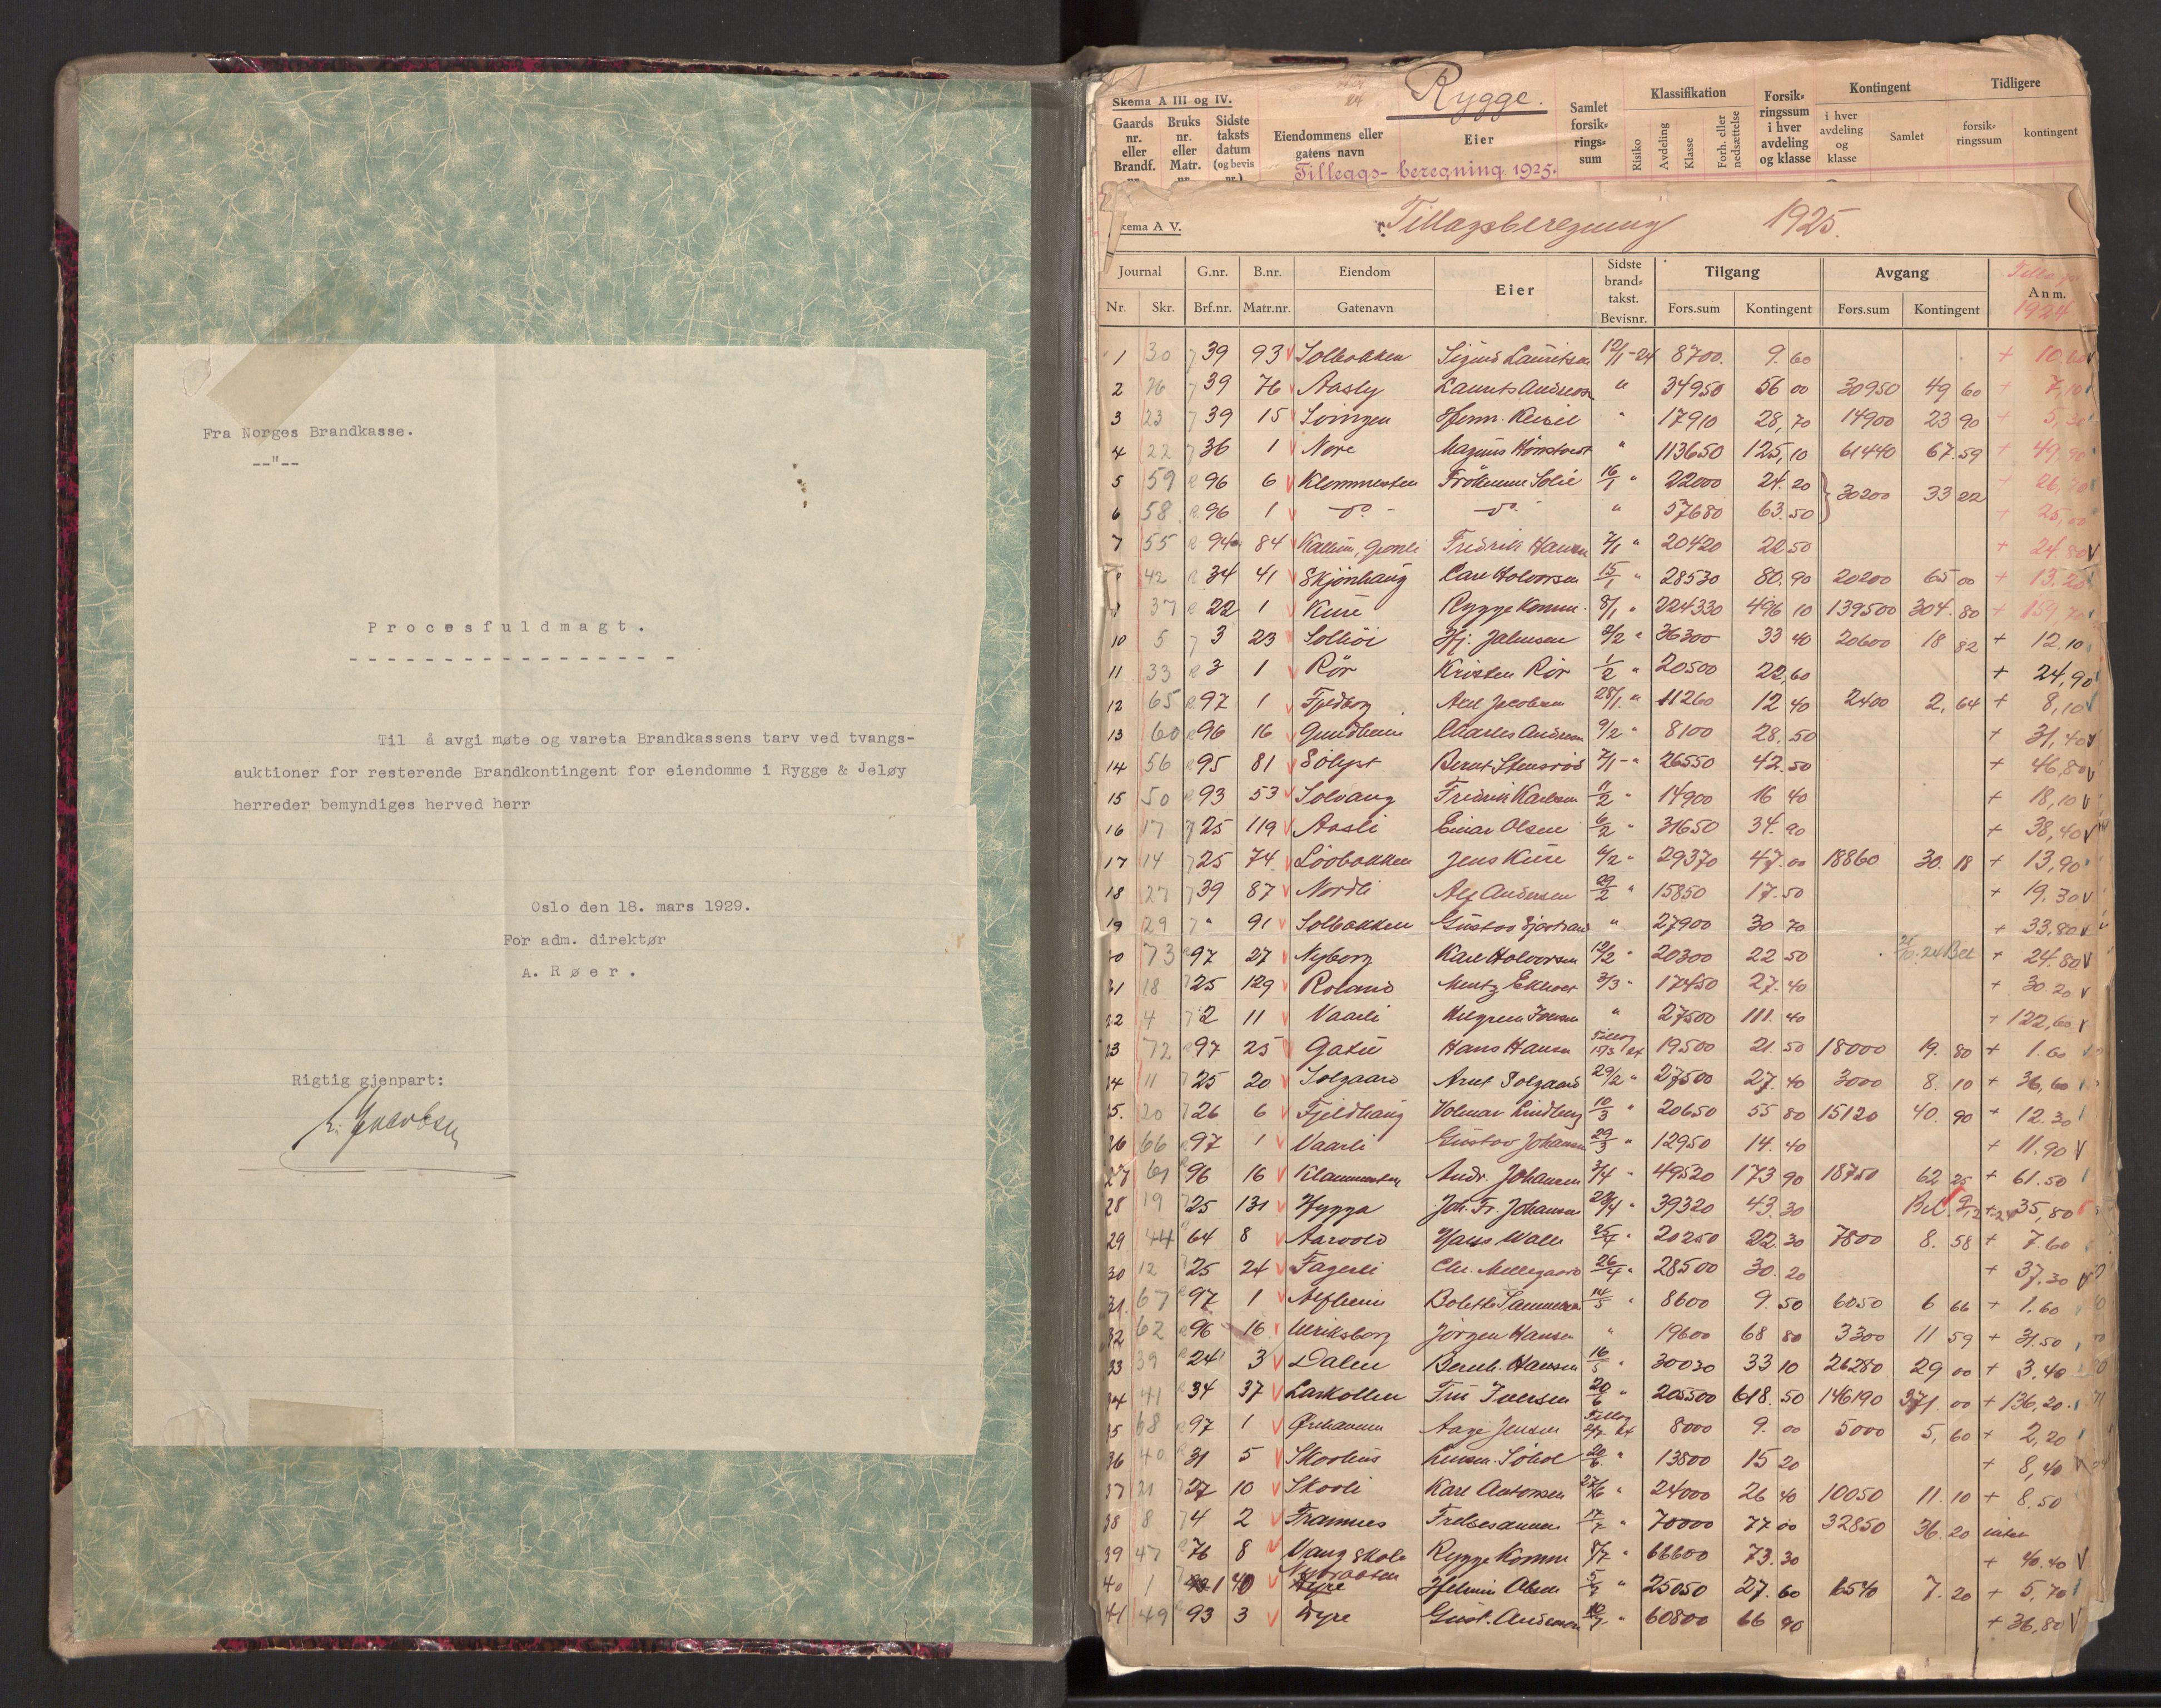 Fra Norges Brandkasse.
--"--
Procesfuldmagt.
Til å avgi møte og vareta Brandkassens tarv ved tvangs-
auktioner for resterende Brandkontingent for eiendomme i Rygge & Jeløy
herreder bemyndiges herved herr
Oslo den 18. mars 1929.
For adm. direktør
A. Røer.
Rigtig gjenpart:
Rygge.
Skema A III og IV.
Gaards nr. eller Brandf. nr. Bruks nr. eller Matr. nr. Sidste taksts datum (og bevis nr.) Eiendommens eller gatens navn Eier Samlet forsikringssum Klassifikation Risiko Avdeling Klasse Forh. eller nedsættelse Forsikringssum i hver avdeling og klasse Kontingent i hver avdeling og klasse Samlet Tidligere forsikringssum kontingent
Tillegs-beregning 1925.
kema A V. Tillagsberegning 1925.
Journal G.nr. B.nr. Eiendom Eier Sidste brandtakst. Bevisnr. Tilgang Avgang Anm.
Nr. Skr. Brf.nr. Matr.nr. Gatenavn Fors.sum Kontingent Fors.sum Kontingent 1924
1 30 39 93 Solbakken 12/1-24 8700 9.60 + 10,60
2 26 39 76 Aasly Laurits " 34950 56 00 30950 49 60 + 7,10
3 23 39 15 " 17910 28,70 14900 23 90 + 5,30
4 22 36 1 Nore Magnus " 113650 125,10 61440 67.59 + 49,90
5 59 96 6 16/1 " 22000 24.20 30200 33 22
6 58 96 1 do do " 57680 63.50 + 25,00
7 55 94 84 Fredrik Hansen 7/1 " 20420 22 50 + 24.80
42 34 41 Skjönhaug Carl Halvorsen 15/1 " 28530 80.90 20200 65 00 + 13.20
37 22 1 Kure Rygge Komm. 8/1 " 224330 496 10 139500 304.80 + 159,70
10 5 3 23 " 36300 33 40 20600 18 82 + 12,10
11 33 3 1 Rör Kristen Rör 1/2 " 20500 22,60 + 24,90
12 65 97 1 Axel Jacobsen 28/1 " 11260 12 40 2400 2,64 + 8,10
13 60 96 16 Charles 9/2 " 8100 28.50 + 31,40
14 56 95 81 Sölyst Bernt 7/1 - " 26550 42.50 + 46,80
15 50 93 53 Solvang Fredrik Karlsen 11/2 " 14900 16 40 + 18,10
16 17 25 119 Aasli Einar Olsen 6/2 " 31650 34.90 + 38,40
17 14 25 74 Jens Kure 6/2 " 29370 47.00 18860 30.18 + 13,90
18 27 39 87 Nordli Alf Andersen 29/2 " 15850 17.50 + 19.30
19 29 " 91 Solbakken Gustav " 27900 30 70 + 33.80
73 97 27 Nyborg Karl Halvorsen 12/2 " 20300 22 50 + 24.80
21 18 25 129 Roland 3/3 " 17450 27.40 + 30.20
22 4 2 11 Vaarli " 27500 111.40 + 122,60
23 72 97 25 Hans Hansen Tillæg 15/3 24 19500 21.50 18000 19.80 + 1.60
24 11 25 20 Solgaard Arnt Solgaard 29/2 " 27500 27.40 3000 8.10 + 36,60
25. 20 26 6 Fjeldhaug Volmar Lindberg 10/3 " 20650 55 80 15120 40.90 + 12.30
26 66 97 1 Vaarli Gustav Johansen 29/3 " 12950 14.40 + 11.90
27 61 96 16 Andr. Johansen 3/4 " 49520 173 90 18750 62 25 + 61.50
28 19 25 131 Hygga Joh. Fr. Johansen 28/4 " 39320 43.30 + 35,80
29 44 64 8 Aarvold 25/4 " 20250 22.30 7800 8.58 + 7.60
30 12 25 24 Fagerli 26/4 " 28500 30.20 + 37.30
31. 67 97 1 14/5 " 8600 9.50 6050 6 66 + 1.60
32 62 96 16 Ulriksborg Jörgen Hansen " 19600 68 80 3300 11 59 + 31.50
33 39 24 3 Dalen Hansen 16/5 " 30030 33 10 26280 29 00 + 3.40
34 41 34 37 Larkollen 20/6 " 205500 618.50 146190 371.00 + 136,20
35 68 97 1 Aage Jensen Tillæg 24 8000 9.00 5000 5,60 + 2,20
36 40 31 5 20/6 " 13800 15 20 + 8,40
37 21 27 10 Skovli Karl Antonsen 27/6 " 24000 26 40 10050 11.10 + 8.50
38 8 4 2 Framnes 17/7 " 70000 77 00 32850 36.20
39 47 76 8 Vang skole Rygge Komm 8/7 " 66600 73.30 + 40.40
40 1 1 40 " 25050 27.60 6540 7.20 + 5,70
41 49 93 3 Dyre Gust. " 60800 66 90 + 36,80